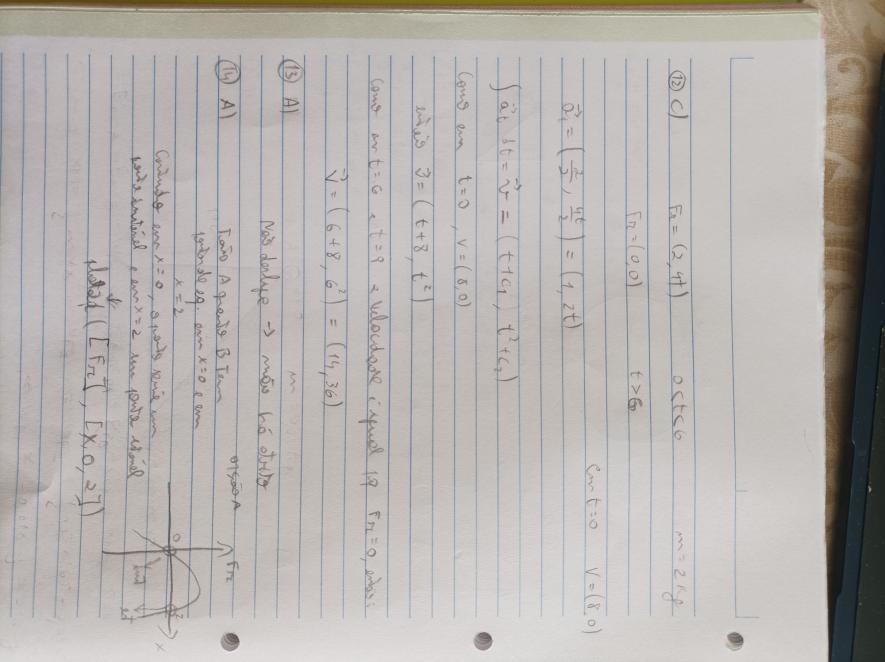 12 C) Fr = (2, 4t) 0<t<6 m = 2 kg
Fr = (0,0) t>6
Em t=0 V=(8,0)
a⃗₁ = (2/2, 4t/2) = (1, 2t)
∫ a⃗t dt = v⃗ = (t+c₁, t²+c₂)
Como em t=0, v=(8,0)
então v⃗ = (t+8, t²)
Como em t=6 e t=9 a velocidade é igual já q Fr=0, então:
V⃗ = (6+8, 6²) = (14, 36)
13 A)
Não → não há atrito
14 A) Tanto A quanto B Tem opção A
ponto de eq. em x=0 e em
x=2
Contudo em x=0, o ponto seria um
ponto instável e em x=2 um ponto estável
Fr
0 2 x
inst
est
([Fr], [X,0,2])